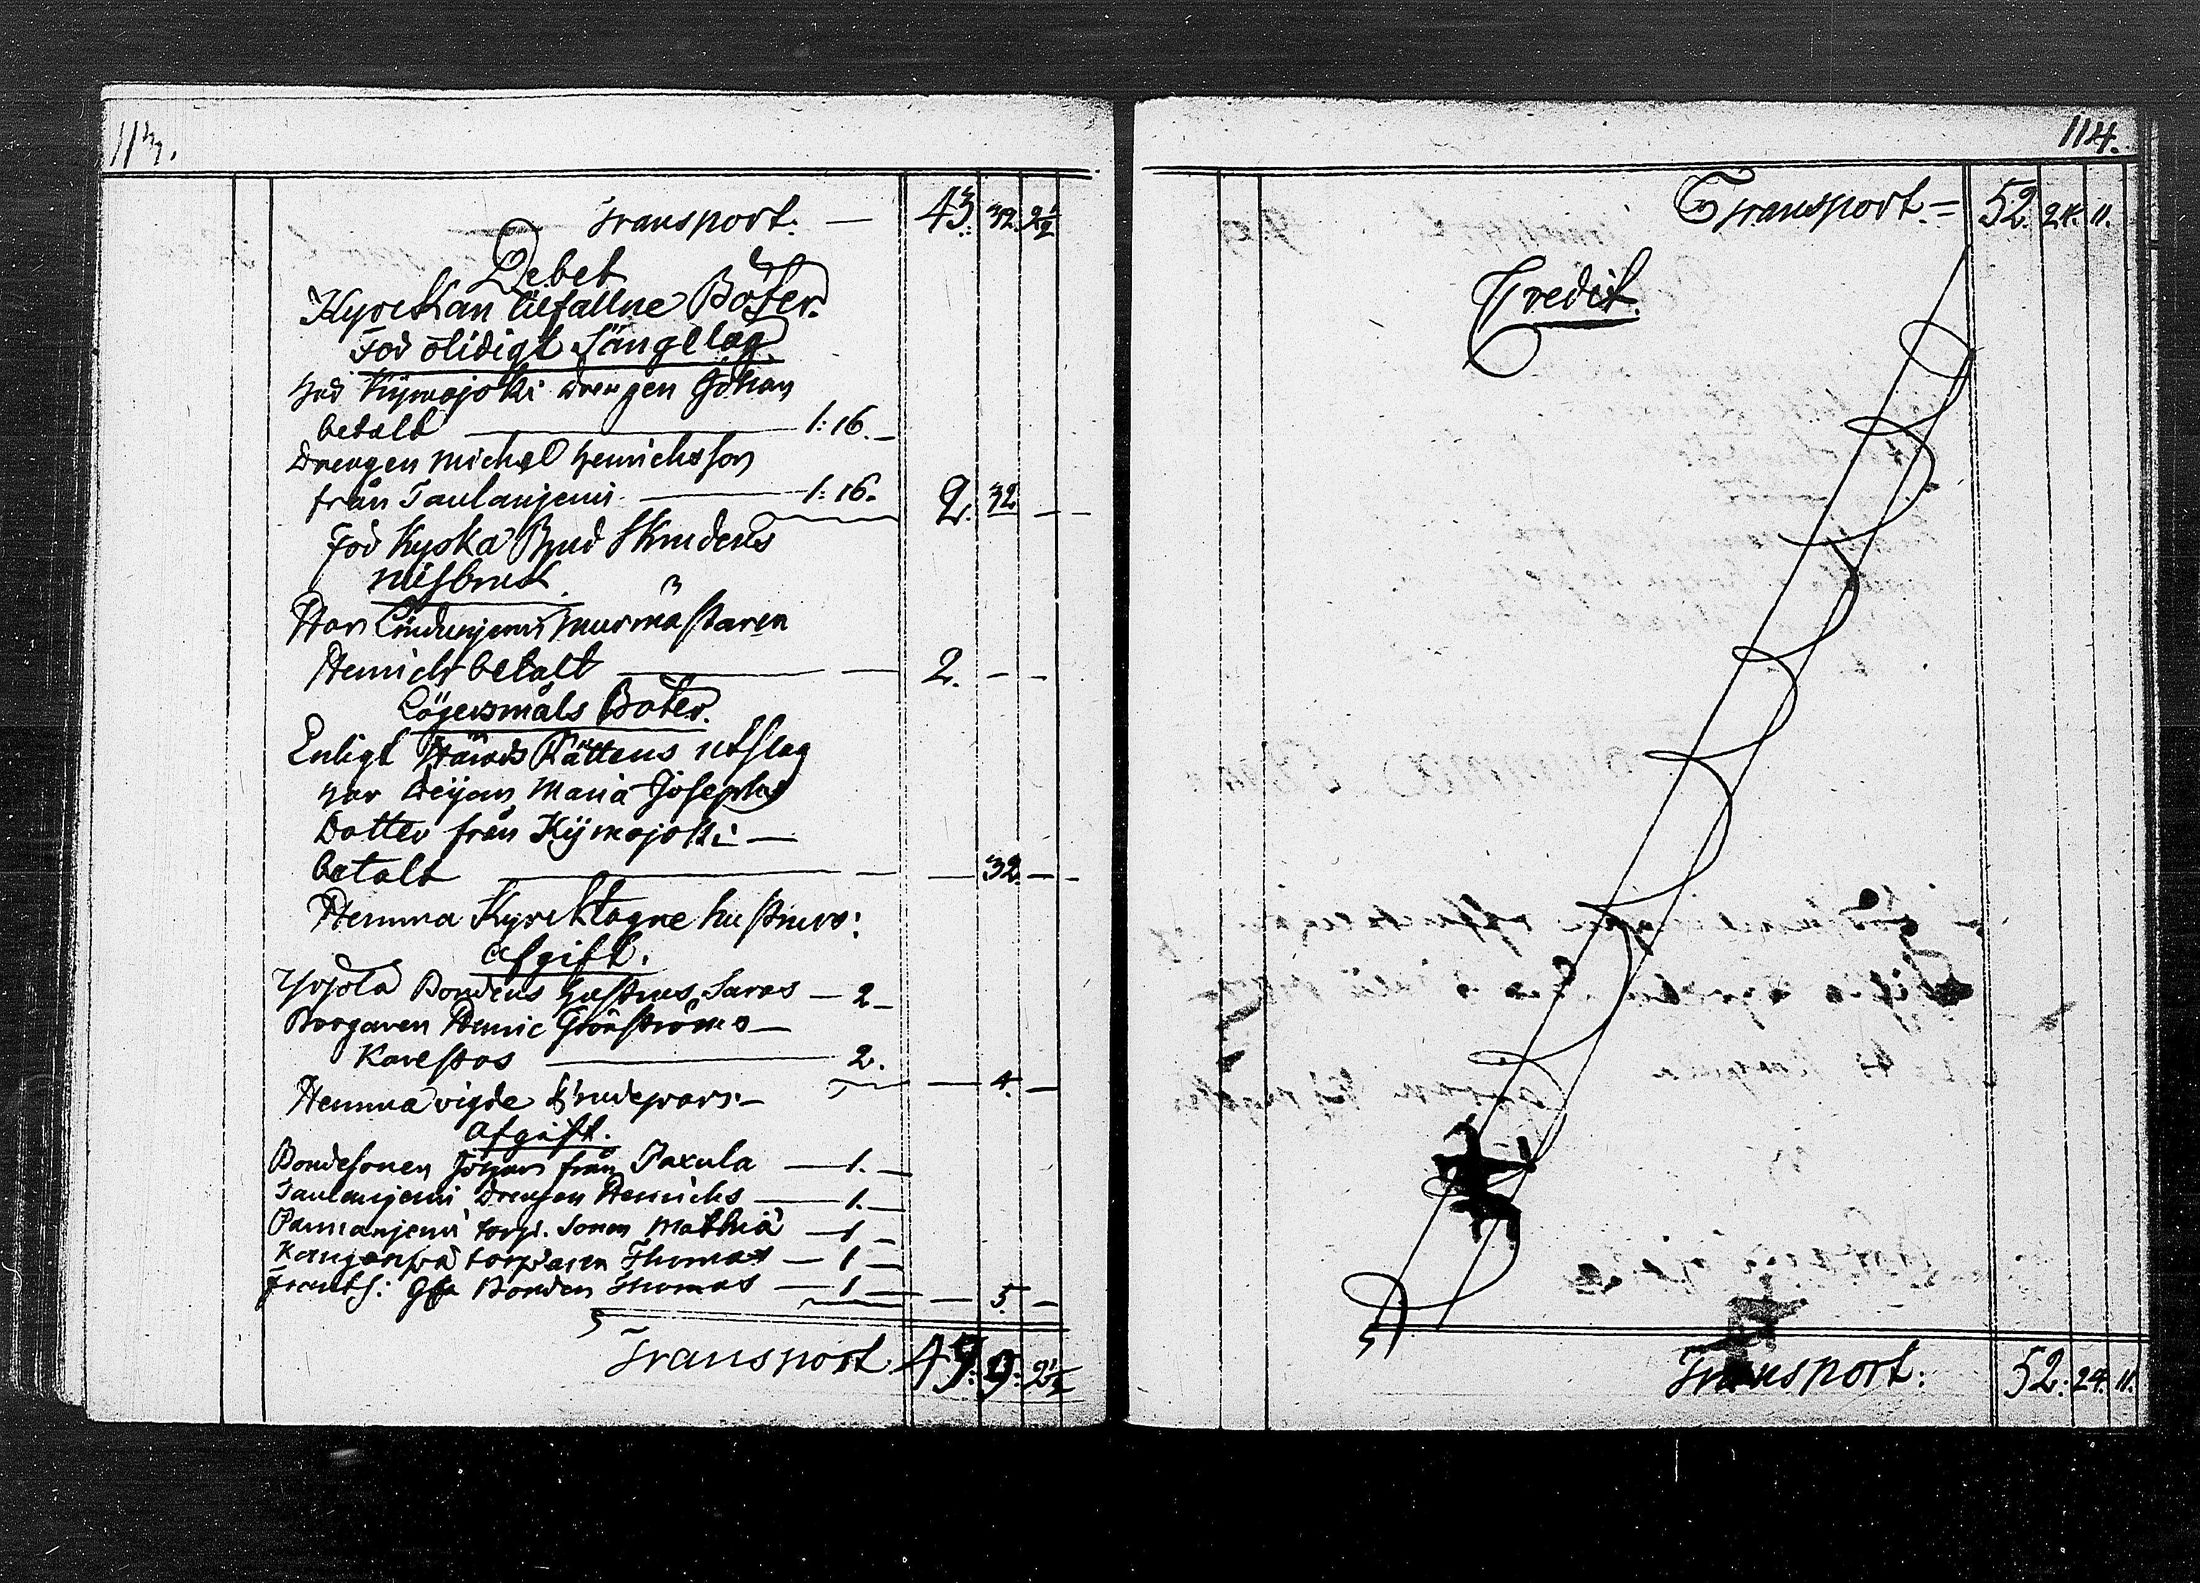 113.
Transport: — 43. 32. 2½
Debet
Kyrckan tilfallne Böter.
För otidigt Sängelag
Kijmajoki drengen Johan
betalt — 1: 16. —
Drengen Michel Henrichsson
från Taulanjemi — 1: 16. 2. 32 — —
För Kyska Brud Skrudens
missbruk.
Har Murmästaren
Henrich betalt — 2. — —
Lägersmåls Böter.
Enligt Härads Rättens utslag
har Pijan Maria Josephs
Dotter från Kijmajoki —
betalt — — 32. — —
Hemma Kyrcktagne hustrurs:
afgift.
Yrjola Bondens hustrus Saras — 2 —
Borgaren Henric Grönströms —
— 2. — 4. —
Hemma vigde brudepars —
afgift.
Bondesonen Johan från Paxula — 1. —
Taulanjemi Drengen Henrichs — 1. —
torp. Sonen Mathia — 1 —
torparen Thomas — 1 —
Bonden Thomas — 1 — — 5. —
Transport 49. 9. 2½
114.
Transport. = 52. 24. 11.
Credit.
Transport: 52. 24. 11.